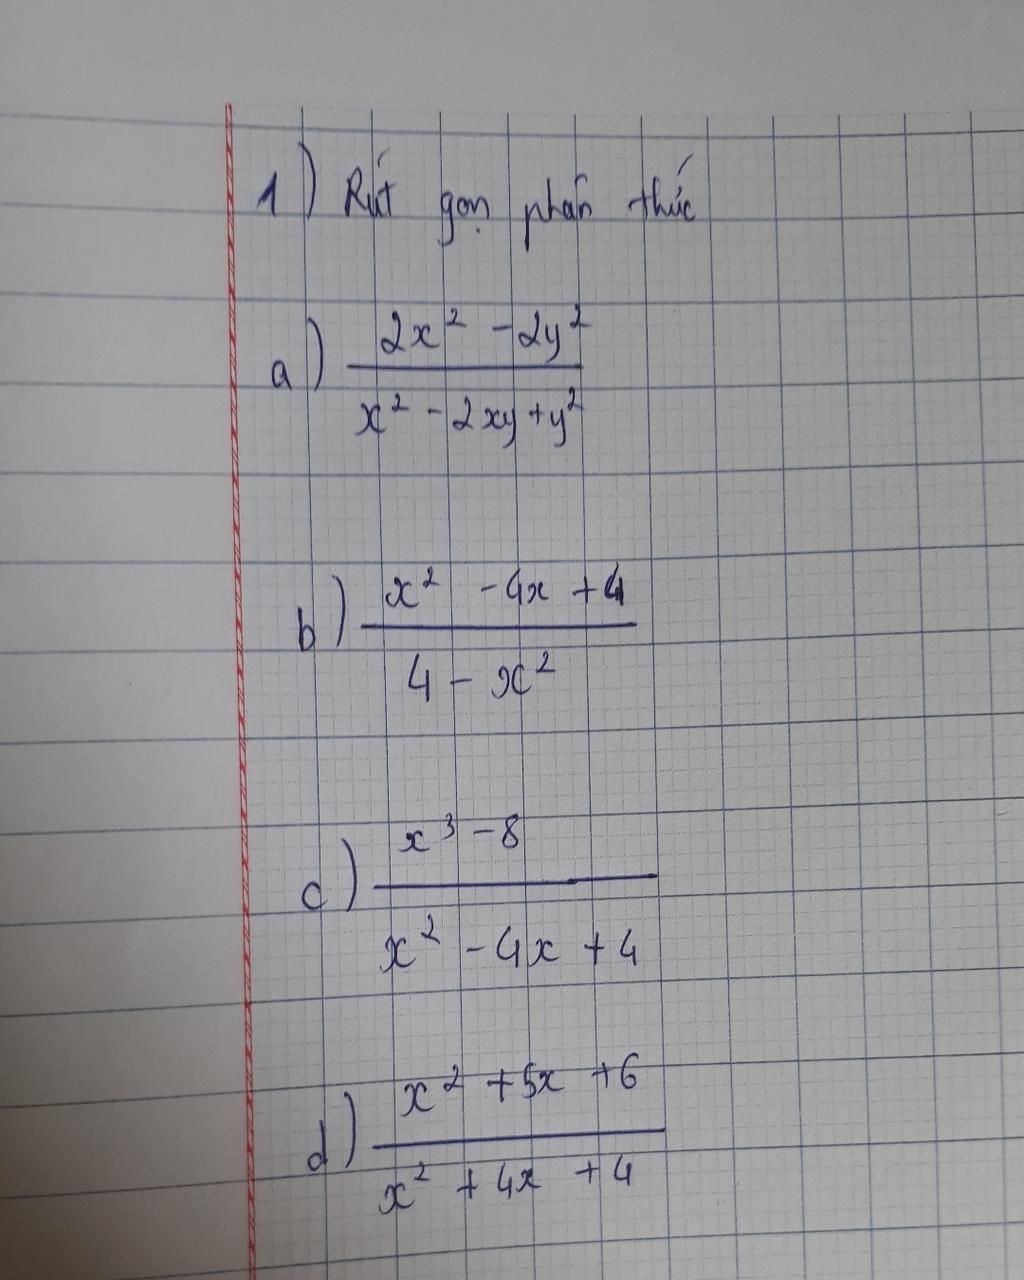 1) Rút gọn phân thức
a) 2x² - 2y²
x² - 2xy + y²
b) x² - 4x + 4
4 - x²
c) x³ - 8
x² - 4x + 4
d) x² + 5x + 6
x² + 4x + 4